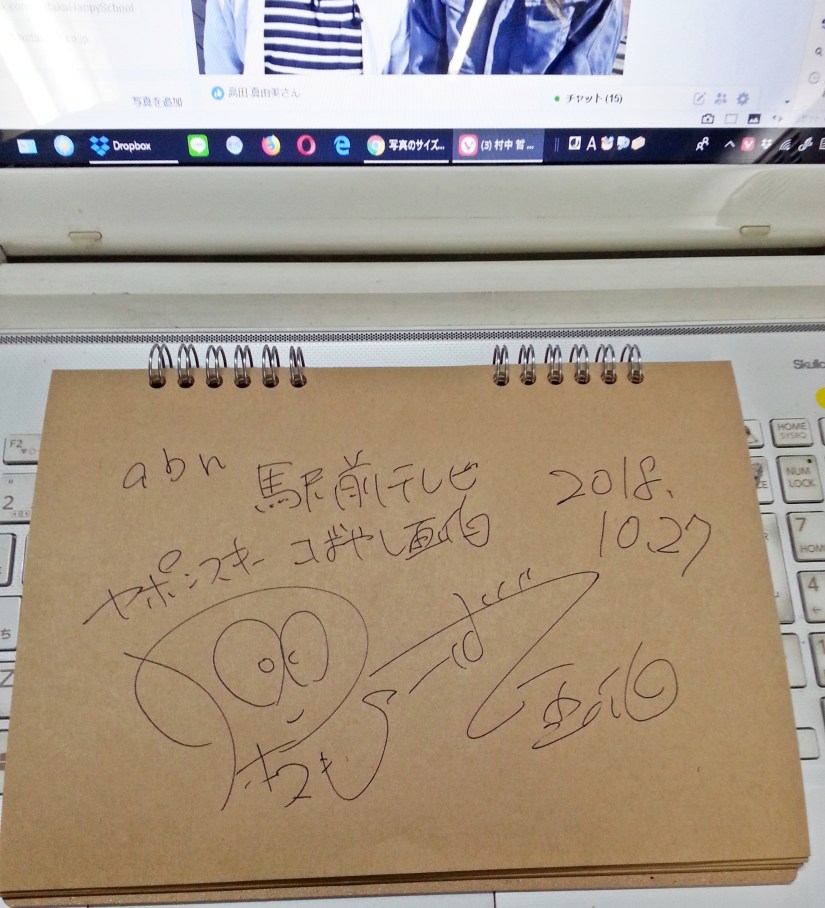 写真を追加
高田 真由美さん
チャット (15)
Dropbox
写真のサイズ...
(3) 村中 哲 ...
A
F2
2
HOME
SYSRQ
NUM
LOCK
7
HOM
4
ち
Z
abn 駅前テレビ 2018.
ヤポンスキー こばやし画伯 10.27
画伯